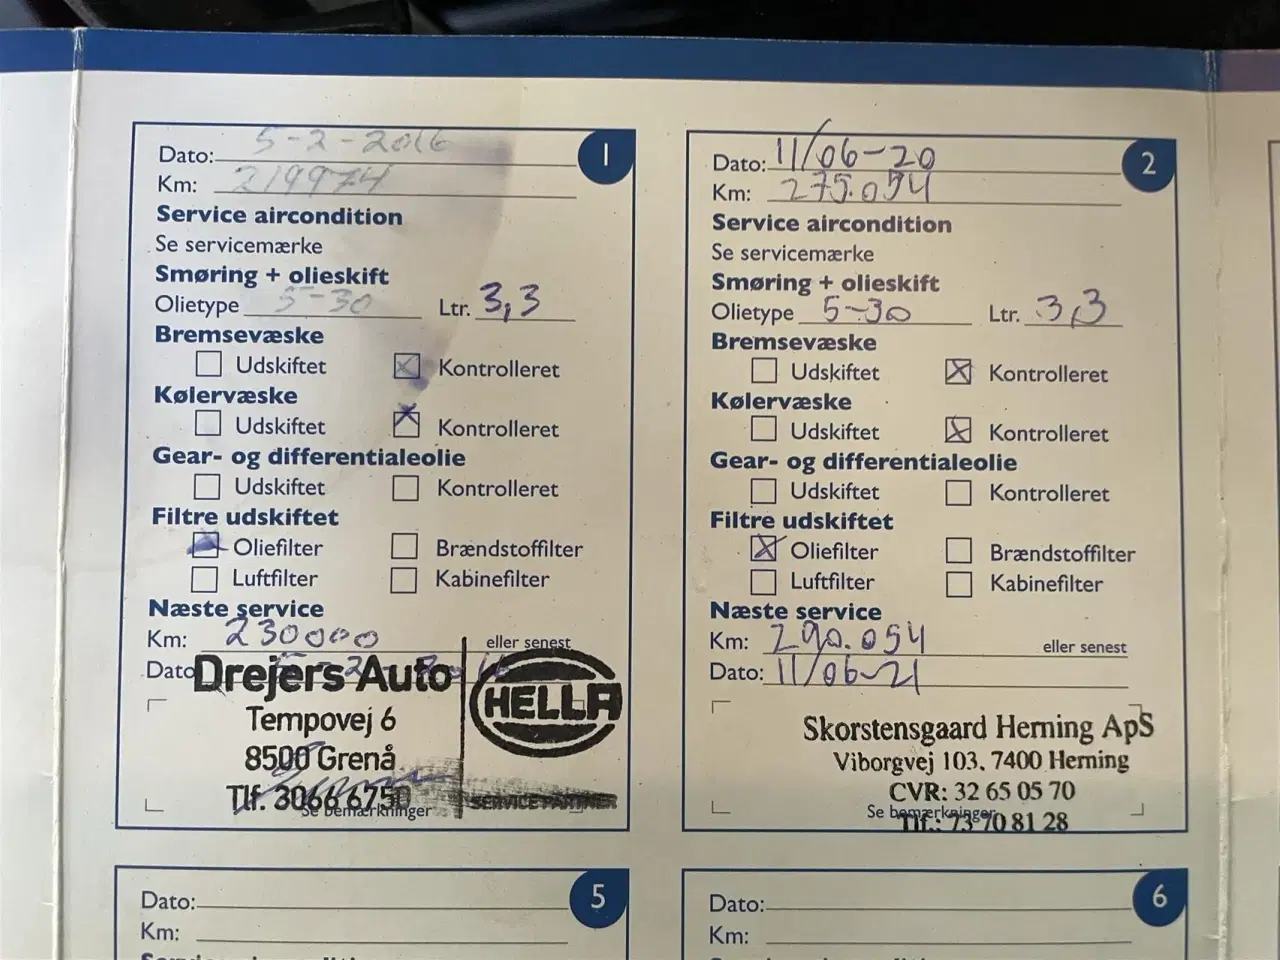 1
Dato: 5-2-2016
Km: 219974
Service aircondition
Se servicemærke
Smøring + olieskift
Olietype 5-30 Ltr. 3,3
Bremsevæske
Udskiftet Kontrolleret
Kølervæske
Udskiftet Kontrolleret
Gear- og differentialeolie
Udskiftet Kontrolleret
Filtre udskiftet
Oliefilter Brændstoffilter
Luftfilter Kabinefilter
Næste service
Km: 230000 eller senest
Dato
Drejers Auto HELLA
Tempovej 6
8500 Grenå
Tlf. 3066 6750 SERVICE PARTNER
Se bemærkninger
2
Dato: 11/06-20
Km: 275.054
Service aircondition
Se servicemærke
Smøring + olieskift
Olietype 5-30 Ltr. 3,3
Bremsevæske
Udskiftet Kontrolleret
Kølervæske
Udskiftet Kontrolleret
Gear- og differentialeolie
Udskiftet Kontrolleret
Filtre udskiftet
Oliefilter Brændstoffilter
Luftfilter Kabinefilter
Næste service
Km: 290.054 eller senest
Dato: 11/06-21
Skorstensgaard Herning ApS
Viborgvej 103, 7400 Herning
CVR: 32 65 05 70
Se bemærkninger
Tlf.: 73 70 81 28
5
Dato:
Km:
6
Dato:
Km: